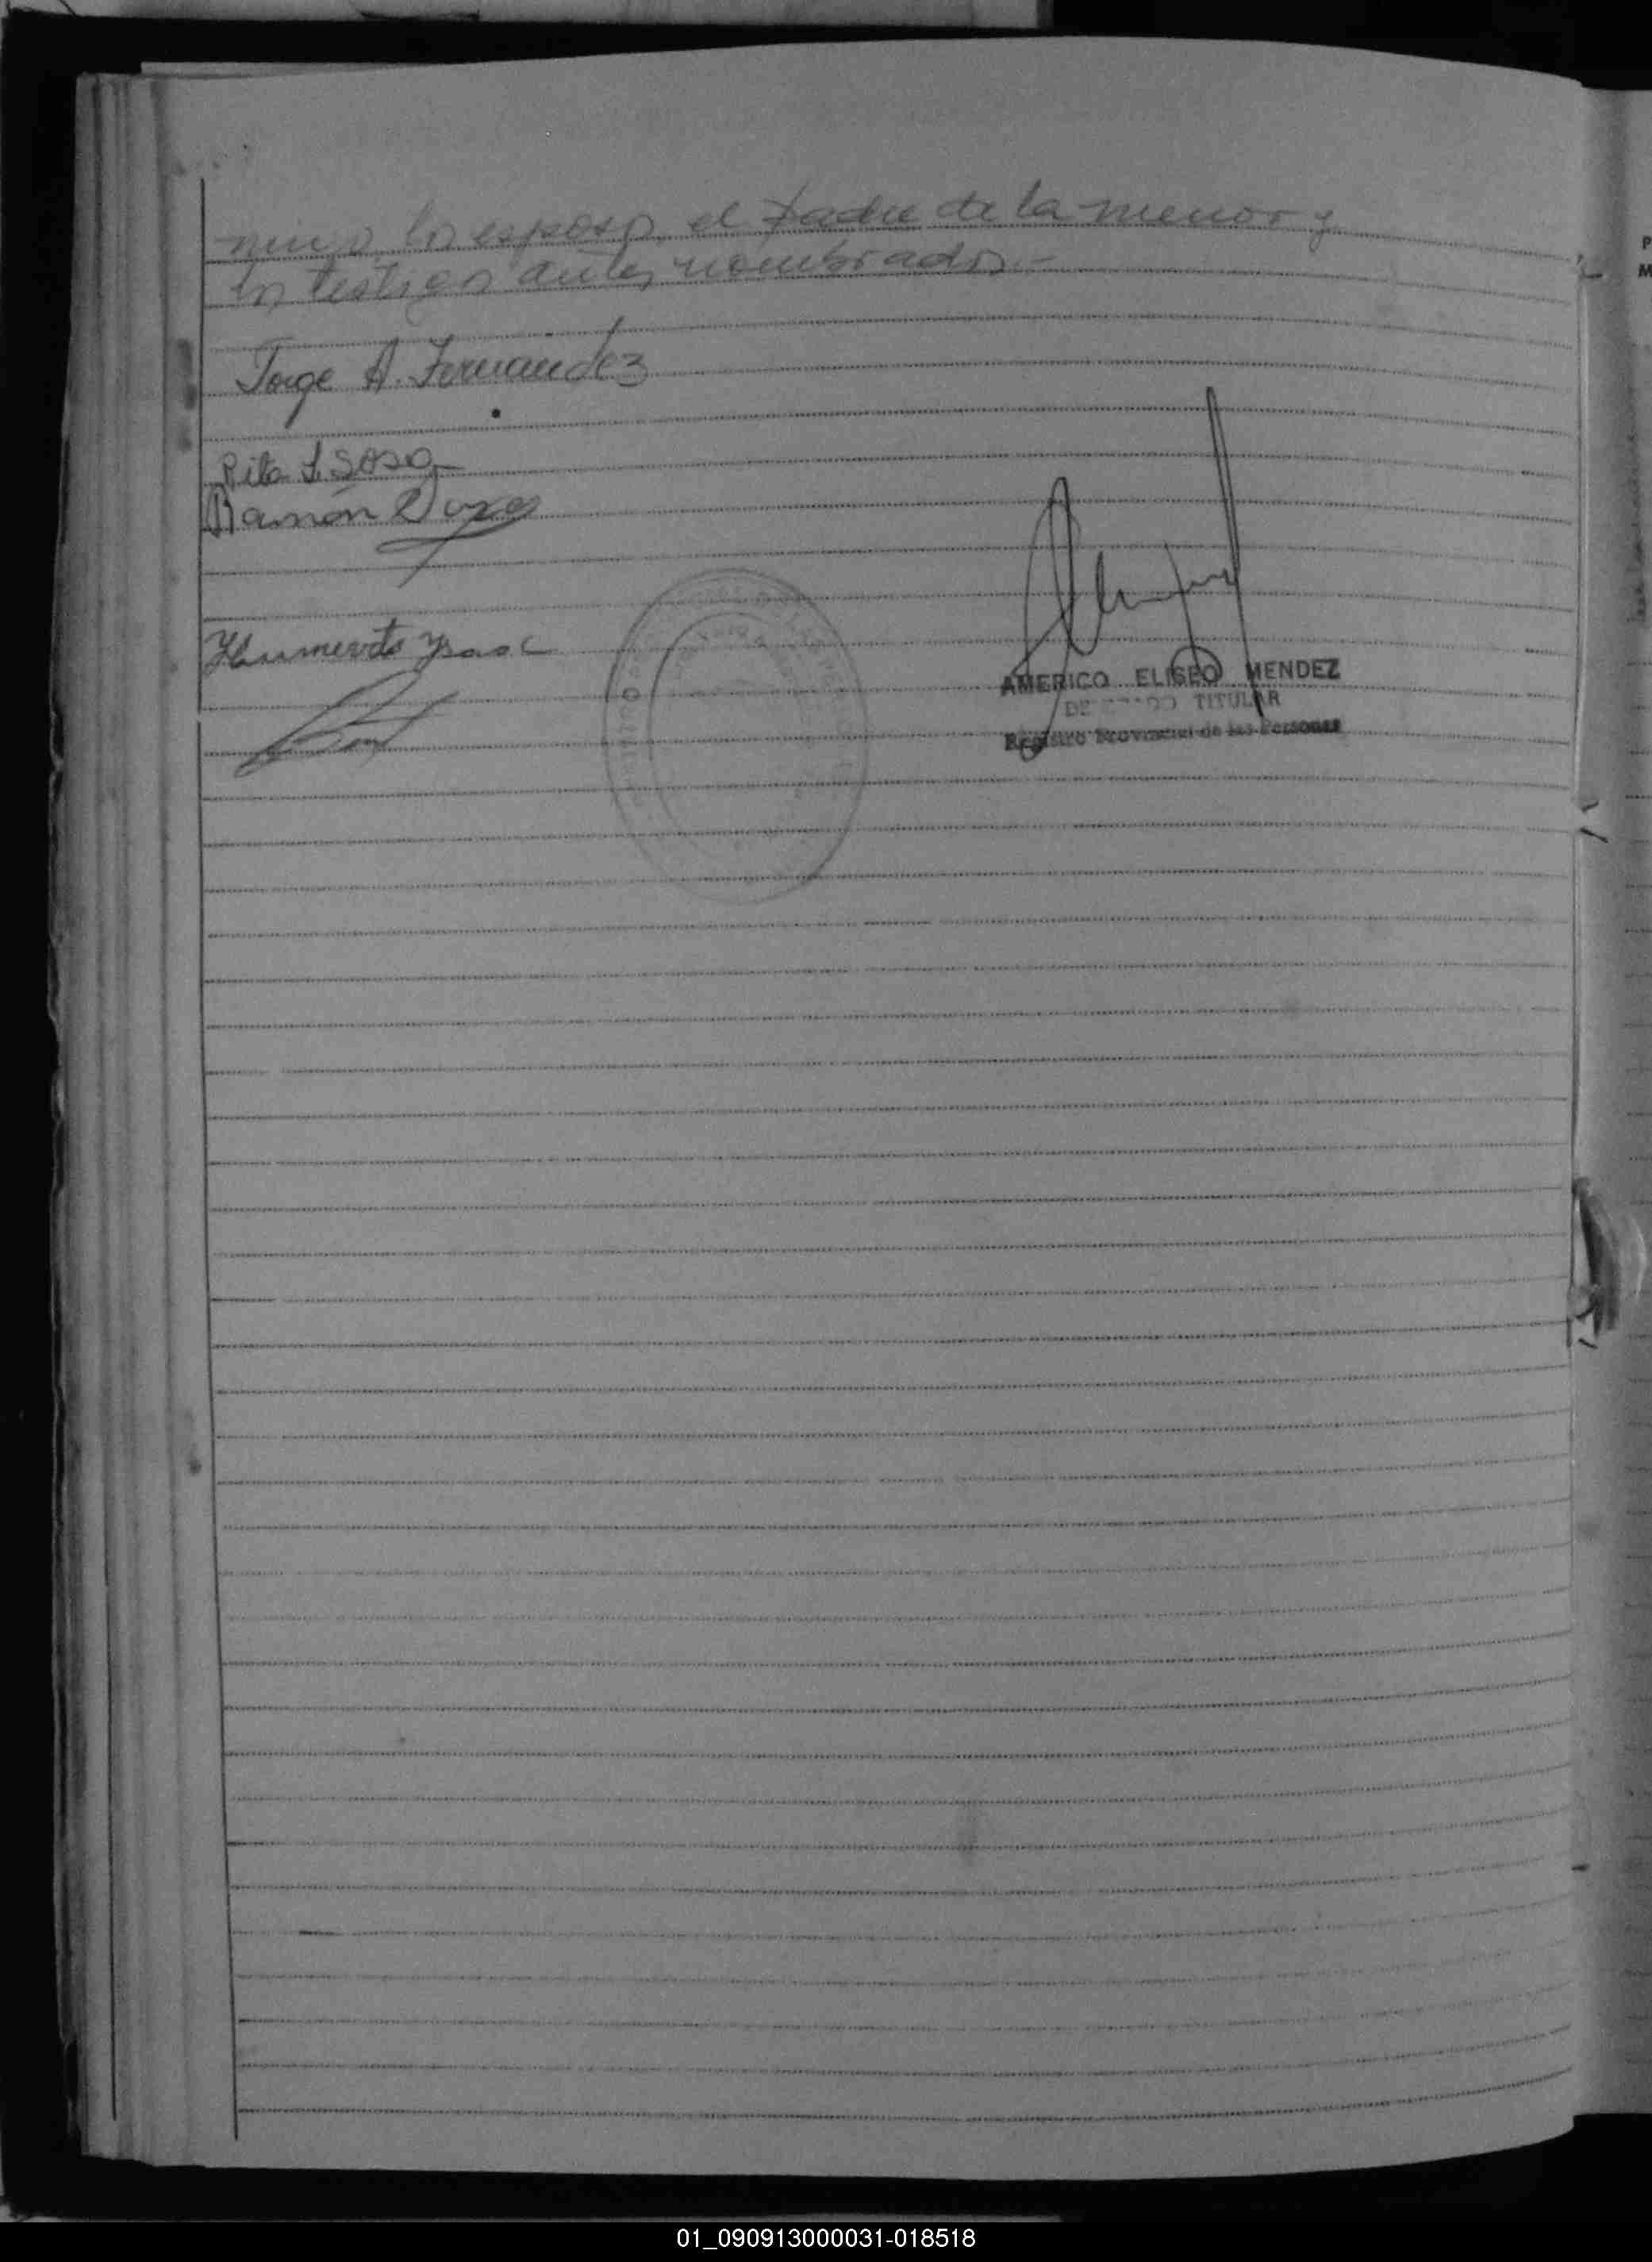 migo los esposos, el Padre de la menor y
los testigos antes nombrados.-
Jorge A. Fernandez
Rita I. Sosa
Ramón
AMERICO ELISEO MENDEZ
DELEGADO TITULAR
Registro Provincial de las Personas
P
M
01_090913000031-018518